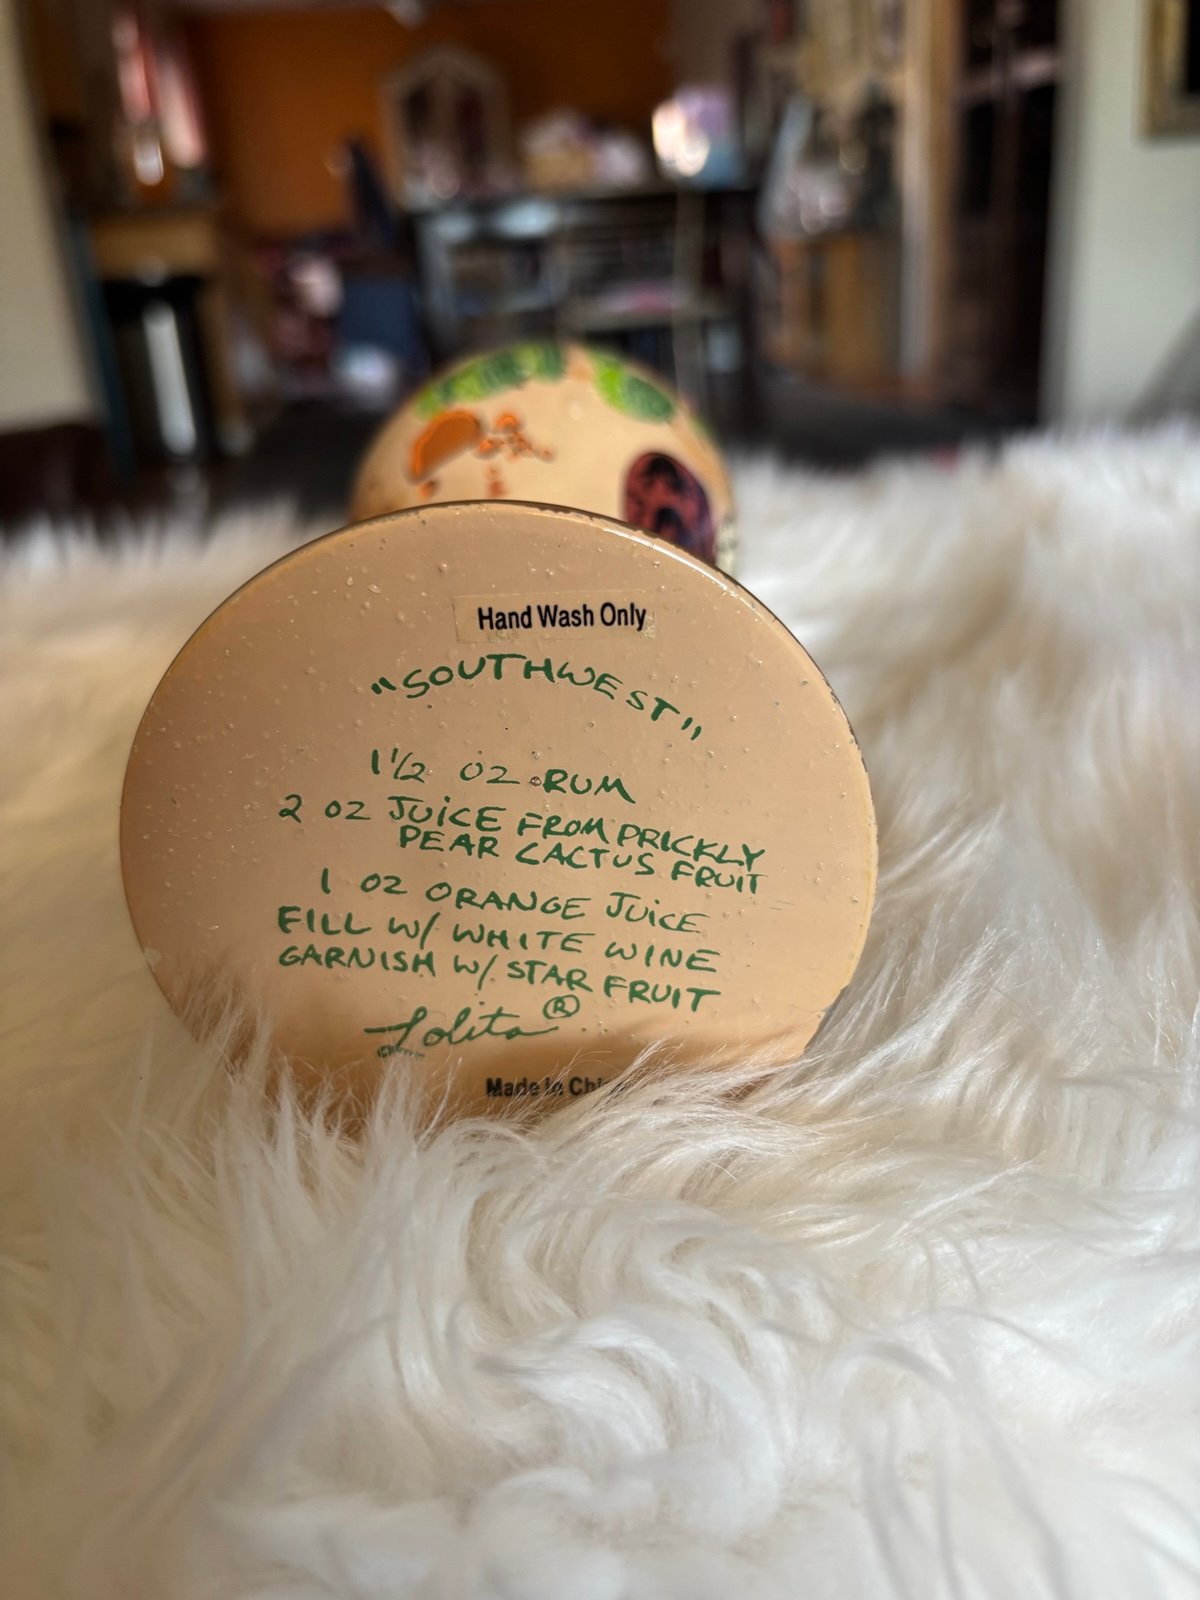 Hand Wash Only
"SOUTHWEST"
1 1/2 OZ RUM
2 OZ JUICE FROM PRICKLY
PEAR CACTUS FRUIT
1 OZ ORANGE JUICE
FILL W/ WHITE WINE
GARNISH W/ STAR FRUIT
Lolita®
Made in